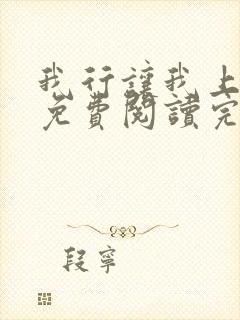 我行讓我上
免費閱讀完
段寧